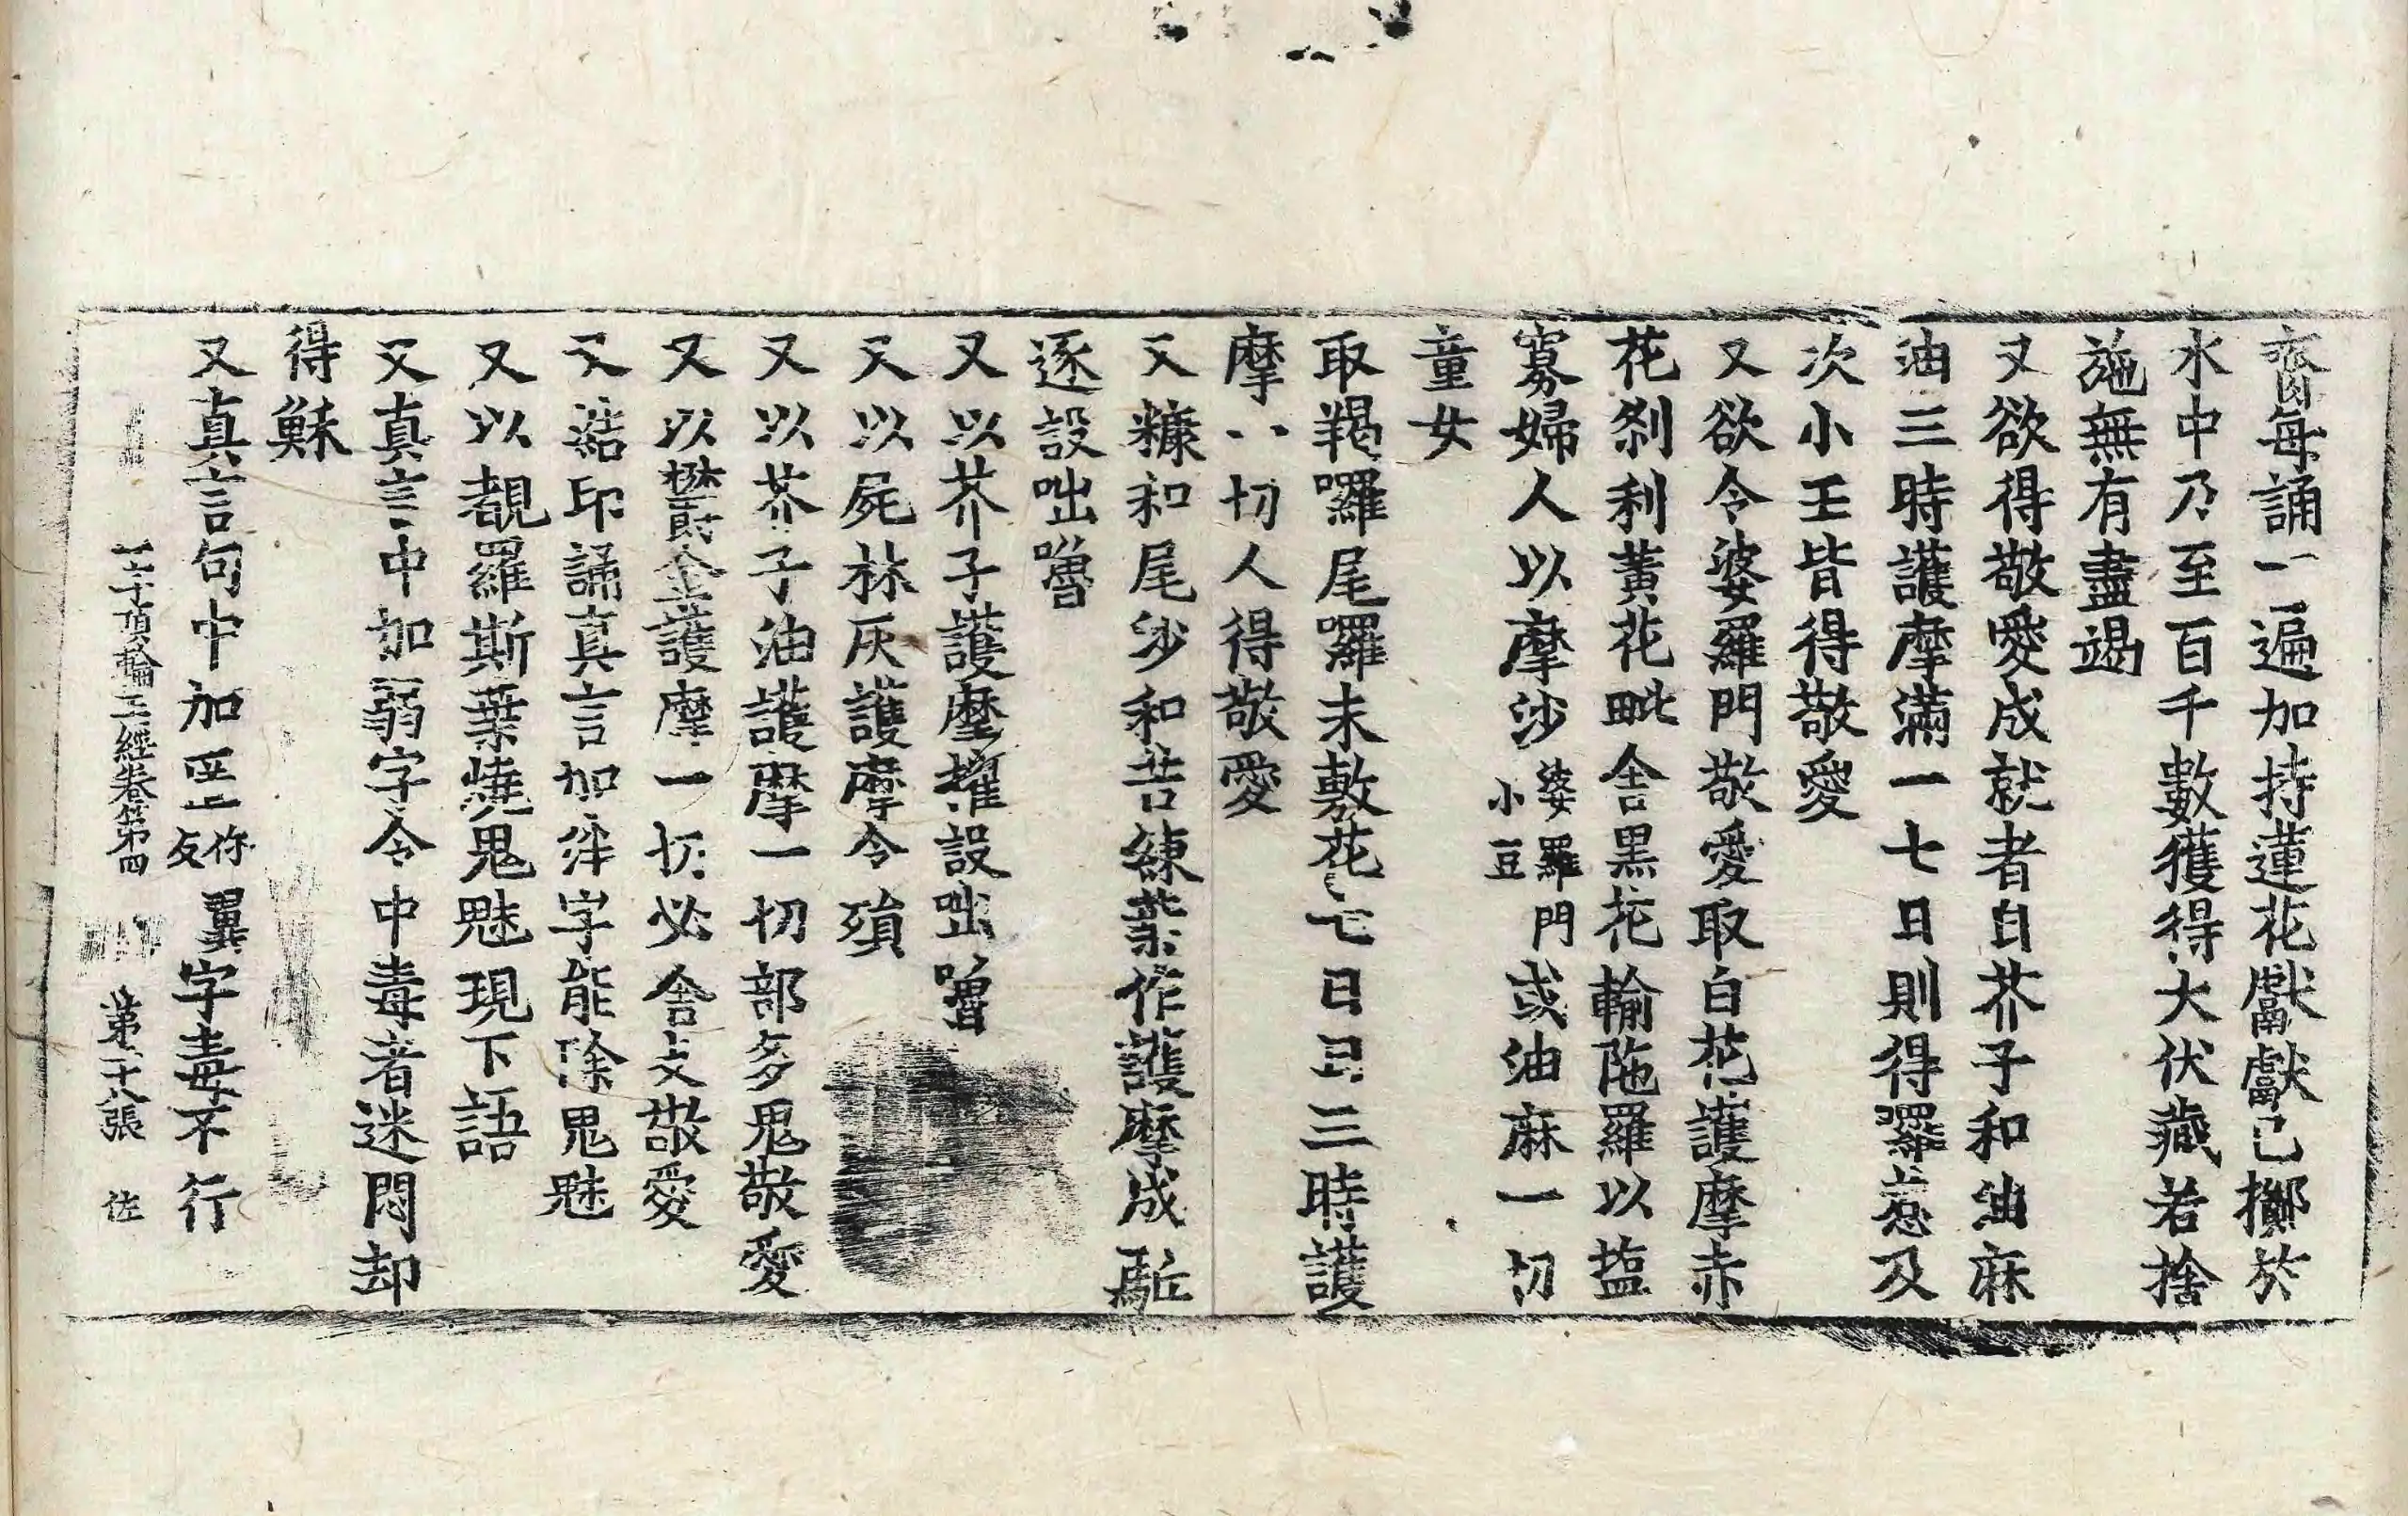 齎每誦一遍加持蓮花獻獻已擲於
水中乃至百千數獲得大伏藏若捨
施無有盡竭
又欲得敬愛成就者白芥子和油麻
油三時護摩滿一七日則得囉惹及
次小王皆得敬愛
又欲令婆羅門敬愛取白花護摩赤
花刹利黃花毗舍黑花輸陁羅以塩
寡婦人以摩沙婆羅門小豆或油麻一切
童女
取羯囉尾囉末敷花七日日三時護
摩一切人得敬愛
又糠和尾沙和苦練葉作護摩成駈
逐設咄嚕
又以芥子護摩摧設咄嚕
又以屍林灰護摩令殞
又以芥子油護摩一切部多鬼敬愛
又以欝金護摩一切必舍支敬愛
又結印誦真言加字能除鬼魅
又以覩羅斯葉燒鬼魅現下語
又真言中加弱字令中毒者迷悶却
得穌
又真言句中加翼字毒不行
一字頂輪王經卷第四 第二十八張 佐